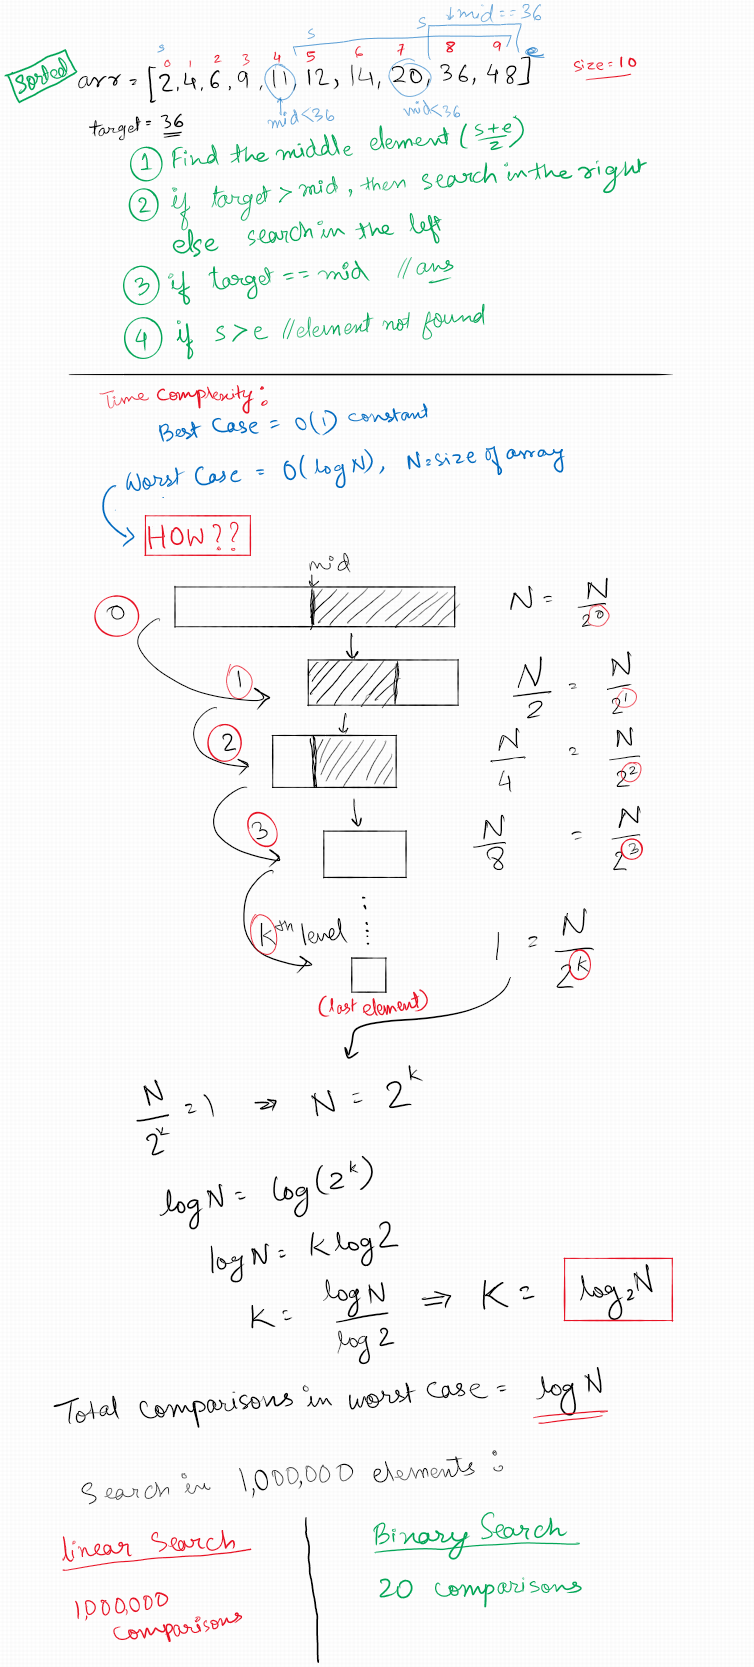 s ↓mid == 36
s s
0 1 2 3 4 5 6 7 8 9 e
Sorted arr = [2,4,6,9,11,12,14,20,36,48] size=10
mid<36 mid<36
target = 36
① Find the middle element (s+e/2)
② if target > mid, then search in the right
else search in the left
③ if target == mid // ans
④ if s>e //element not found
Time Complexity:
Best Case = O(1) constant
Worst Case = O(log N), N=size of array
HOW??
mid
0 N = N/2^0
1 N/2 = N/2^1
2 N/4 = N/2^2
3 N/8 = N/2^3
Kth level 1 = N/2^K
(last element)
N/2^k = 1 ⇒ N = 2^k
log N = log(2^k)
log N = K log 2
K = log N/log 2 ⇒ K = log₂N
Total comparisons in worst case = log N
Search in 1,000,000 elements :
linear Search
1,000,000
comparisons
Binary Search
20 comparisons